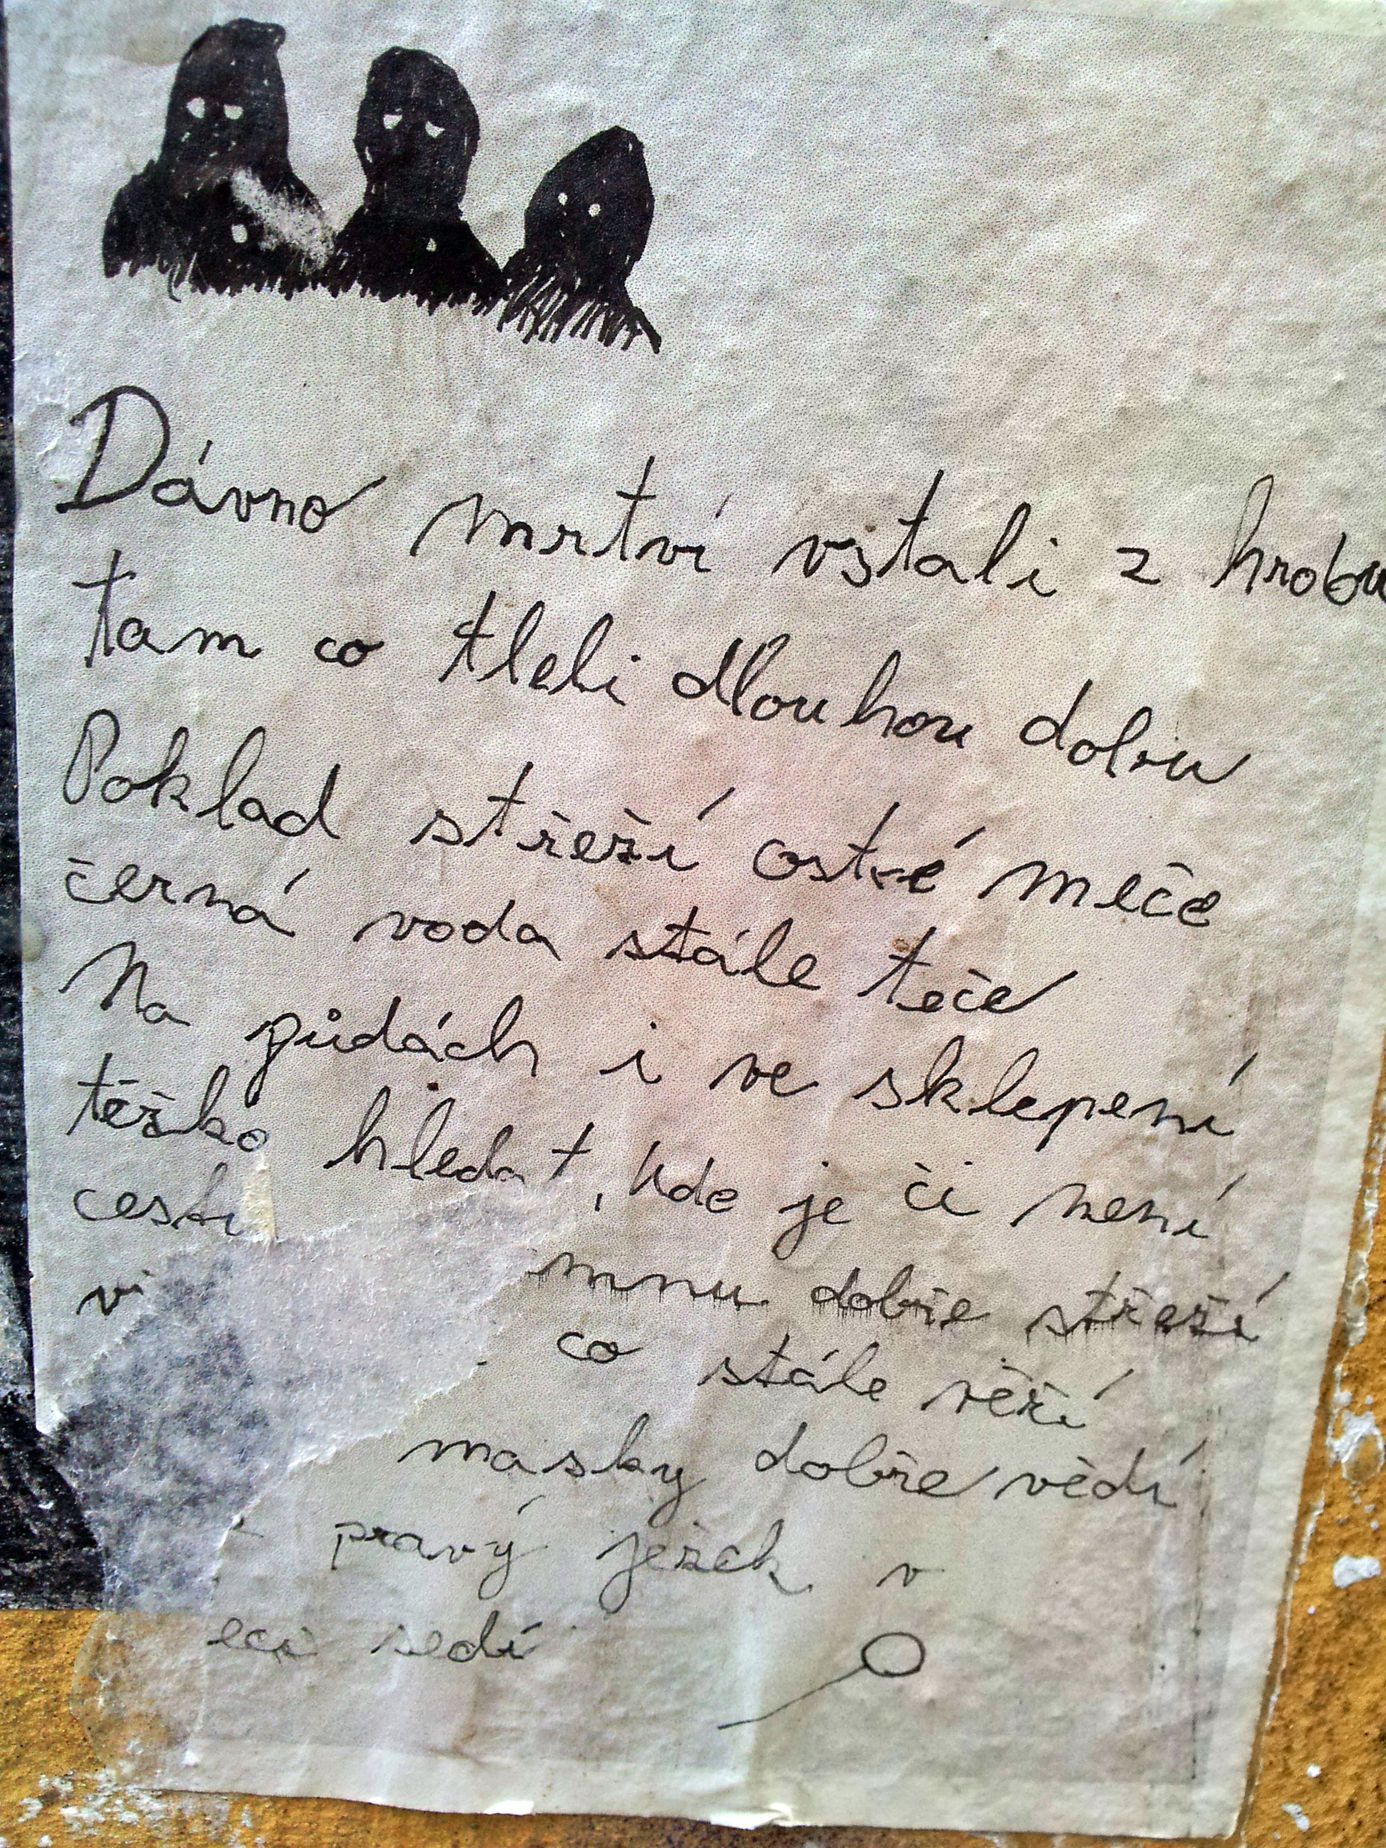 Dávno mrtví vstali z hrobu
tam co tleli dlouhou dobu
Poklad střeží ostré meče
černá voda stále teče
Na půdách i ve sklepení
těžko hledat, kde je či není
mnu dobře střeží
co stále věží
masky dobře vědí
pravý ježek v
eci sedí